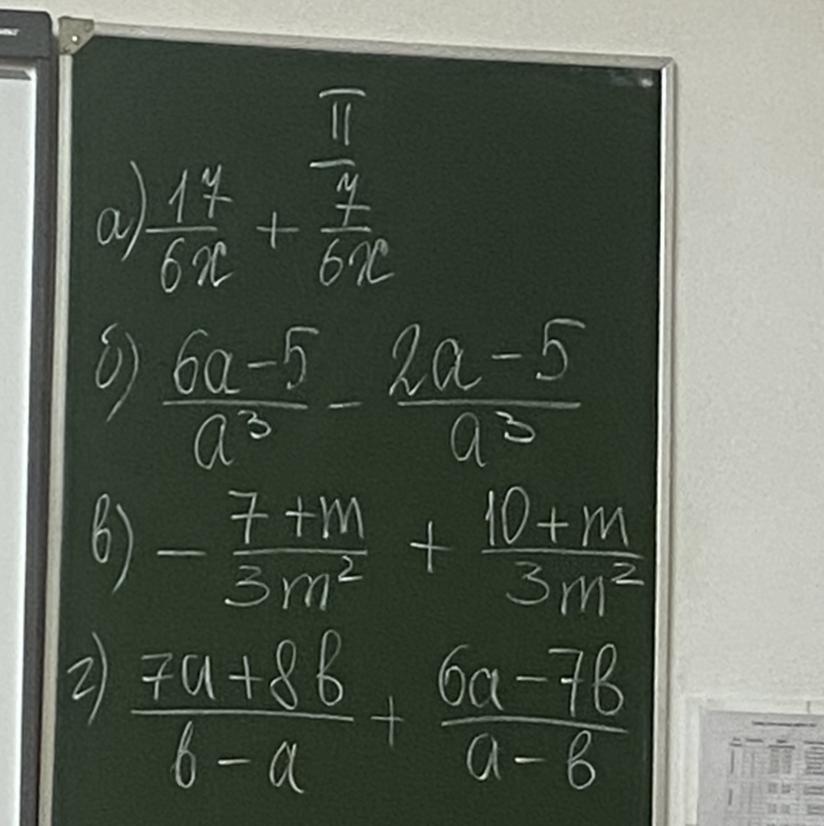 II
а) 17/6x + 7/6x
б) (6a-5)/a³ - (2a-5)/a³
в) - (7+m)/3m² + (10+m)/3m²
г) (7a+8b)/(b-a) + (6a-7b)/(a-b)